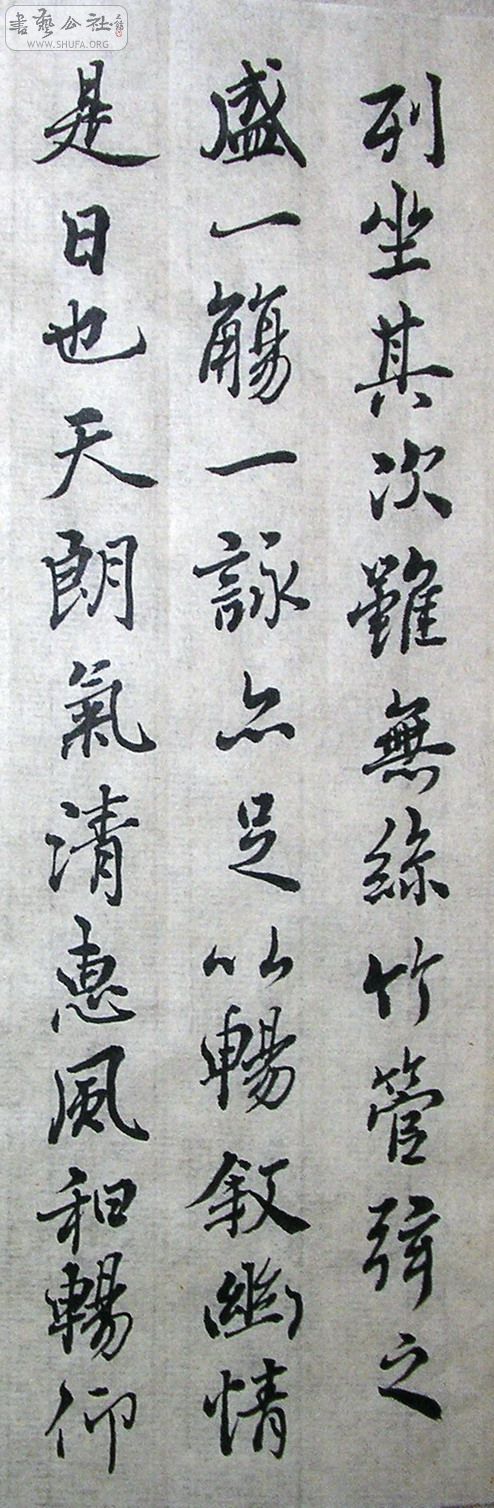 列坐其次雖無絲竹管弦之
盛一觴一詠亦足以暢敘幽情
是日也天朗氣清惠風和暢仰
書藝公社
WWW.SHUFA.ORG